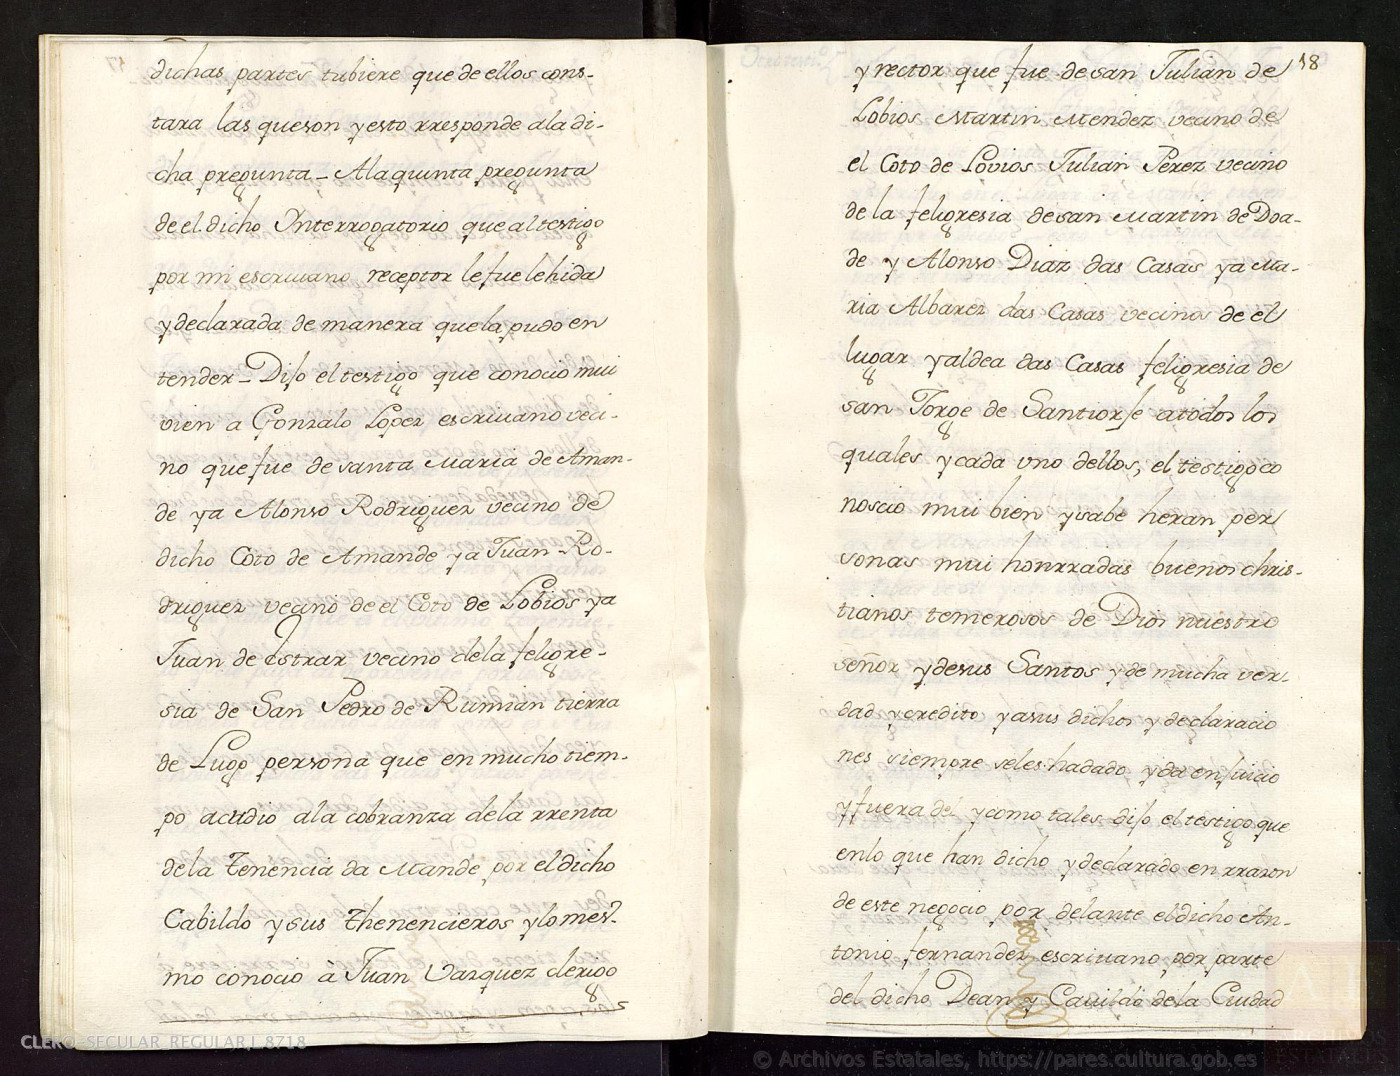 dichas partes tubiere que de ellos cons-
tara las queson y esto rresponde ala di-
cha pregunta - Ala quinta pregunta
de el dicho Interrogatorio que al testigo
por mi escriuano receptor le fue lehida
y declarada de manera que la pudo en
tender - Dijo el testigo que conocio mui
vien a Gonzalo Lopez escriuano veci-
no que fue de santa Maria de Aman-
de ya Alonso Rodriguez vecino de
dicho Coto de Amande ya Juan Ro-
driguez vecino de el Coto de Lobios ya
Juan de Estrar vecino dela feligre-
sia de San Pedro de Rumian tierra
de Lugo persona que en mucho tiem-
po acudio ala cobranza dela rrenta
dela tenencia da Mande por el dicho
Cabildo y sus thenencieros y lo mes-
mo conocio à Juan Vazquez clerigo
18
y rector que fue de san Julian de
Lobios Martin Mendez vecino de
el Coto de Lovios Julian Perez vecino
de la feligresia de san Martin de Doa-
de y Alonso Diaz das Casas ya Ma-
ria Albarez das Casas vecinos de el
lugar y aldea das Casas feligresia de
san Jorge de Santiorje atodos los
quales y cada uno dellos, el testigo co
noscio mui bien y sabe heran per
sonas mui honrradas buenos chris-
tianos temerosos de Dios nuestro
señor y desus Santos y de mucha ver-
dad y credito y asus dichos y declaracio
nes siempre seles hadado y da en juicio
y fuera del y como tales dijo el testigo que
enlo que han dicho y declarado en rrazon
de este negocio por delante el dicho An-
tonio fernandez escriuano por parte
del dicho Dean y Cauildo dela Ciudad
CLERO-SECULAR_REGULAR,L.8718
© Archivos Estatales, https://pares.cultura.gob.es